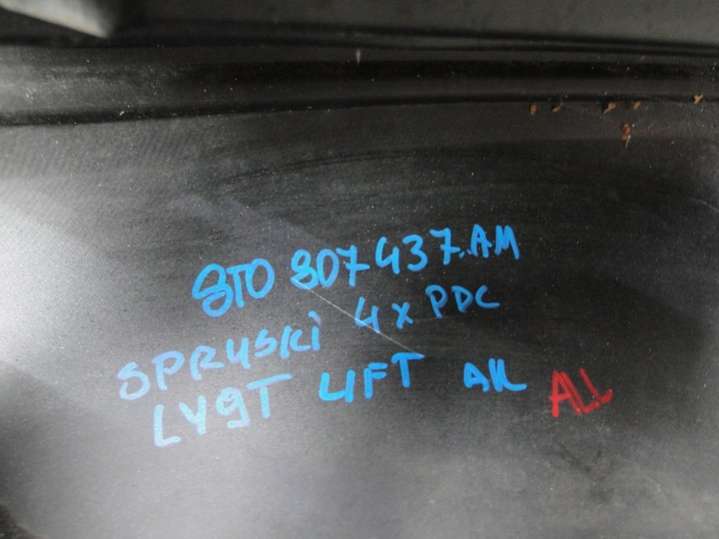 8T0 807 437.AM
SPRYSKI 4x PDC
LY9T LIFT AK ALL